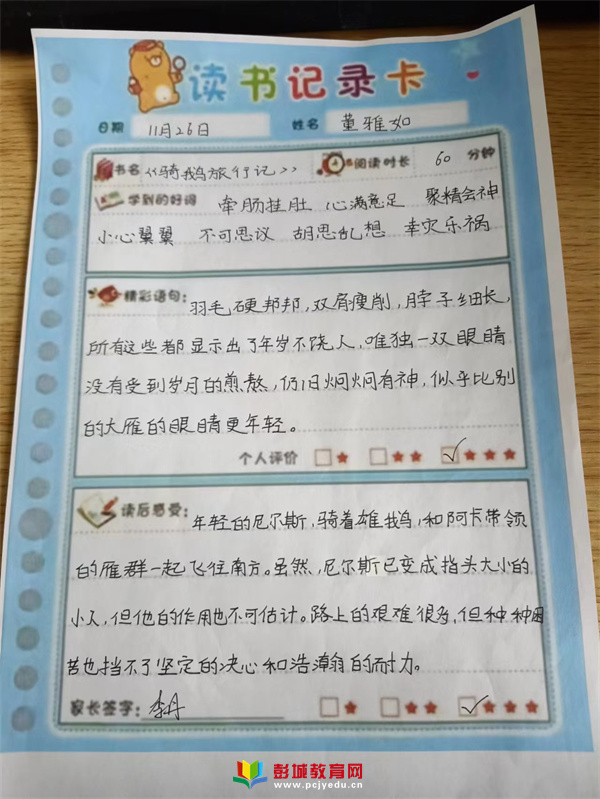 读书记录卡
日期 11月26日 姓名 董雅如
书名 《骑鹅旅行记》 阅读时长 60 分钟
学到的好词 牵肠挂肚 心满意足 聚精会神
小心翼翼 不可思议 胡思乱想 幸灾乐祸
精彩语句: 羽毛硬邦邦,双肩瘦削,脖子细长,
所有这些都显示出了年岁不饶人,唯独一双眼睛
没有受到岁月的煎熬,仍旧炯炯有神,似乎比别
的大雁的眼睛更年轻。
个人评价
读后感受: 年轻的尼尔斯,骑着雄鹅,和阿卡带领
的雁群一起飞往南方。虽然,尼尔斯已变成指头大小的
小人,但他的作用也不可估计。路上的艰难很多,但种种困
苦也挡不了坚定的决心和浩瀚的耐力。
家长签字: 李丹
彭城教育网
www.pcjyedu.cn